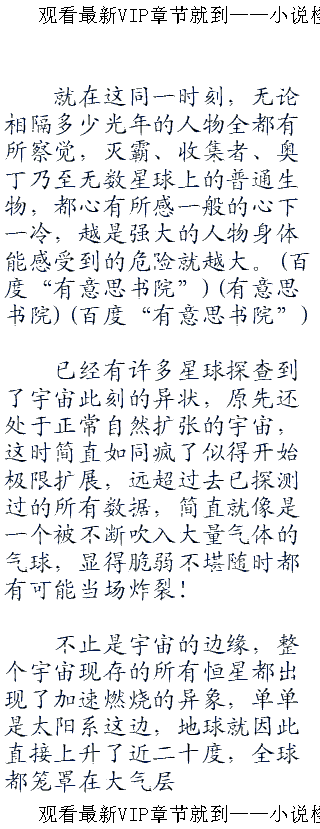 观看最新VIP章节就到——小说检
就在这同一时刻，无论
相隔多少光年的人物全都有
所察觉，灭霸、收集者、奥
丁乃至无数星球上的普通生
物，都心有所感一般的心下
一冷，越是强大的人物身体
能感受到的危险就越大。(百
度“有意思书院”)(有意思
书院)(百度“有意思书院”)
已经有许多星球探查到
了宇宙此刻的异状，原先还
处于正常自然扩张的宇宙，
这时简直如同疯了似得开始
极限扩展，远超过去已探测
过的所有数据，简直就像是
一个被不断吹入大量气体的
气球，显得脆弱不堪随时都
有可能当场炸裂！
不止是宇宙的边缘，整
个宇宙现存的所有恒星都出
现了加速燃烧的异象，单单
是太阳系这边，地球就因此
直接上升了近二十度，全球
都笼罩在大气层
观看最新VIP章节就到——小说检